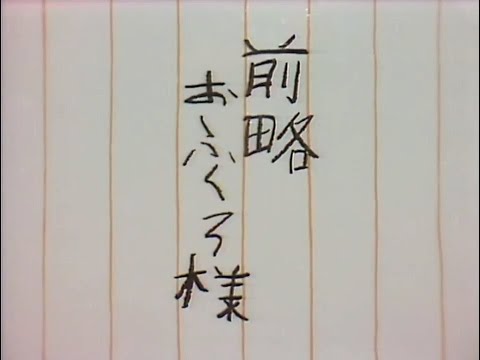 前略
おふくろ様